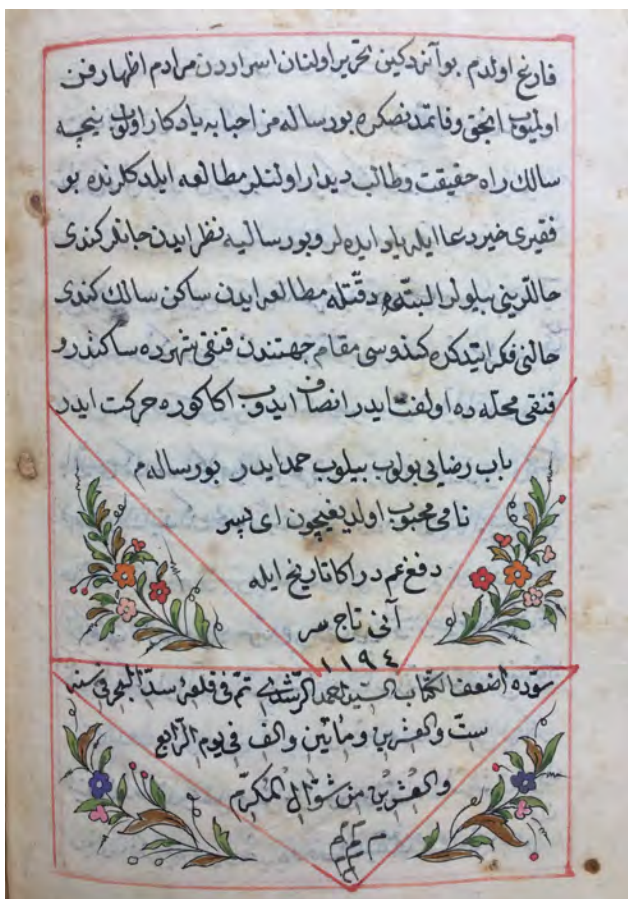 فارغ اولدم بو آنزدكين تحرير اولنان اسراردن مرادم اظهار فن
اوليوب انجق وفاتمدنصكره بو رساله مز احبابه يادكار اولوب نيجه
سالك راه حقيقت وطالب ديدار اولنلر مطالعه ايلدكلرنده بو
فقيرى خير دعا ايله ياد ايده لر و بو رساليه نظر ايدن جانلر كندى
حاللرينى بيلورلر البته دقتله مطالعه ايدن ساكن سالك كندى
حالنى فكر ايتدكده كندوسى مقام جهتندن قنقى شهرده ساكندر و
قنقى محله ده اولفت ايدر انصاف ايدوب اكا كوره حركت ايدر
باب رضايى بولوب بيلوب حمد ايدر بو رساله م
نامى محبوب اولديغيچون اى پسر
دفع غم در اكا تاريخ ايله
آنى تاج سر
١١٩٤
سوّده اضعف الكتاب السيد احمد الرشدى تم فى قلعة سد البحر فى سنه
ستّ والعشرين ومأتين والف فى يوم الرابع
والعشرين من شوّال المكرّم